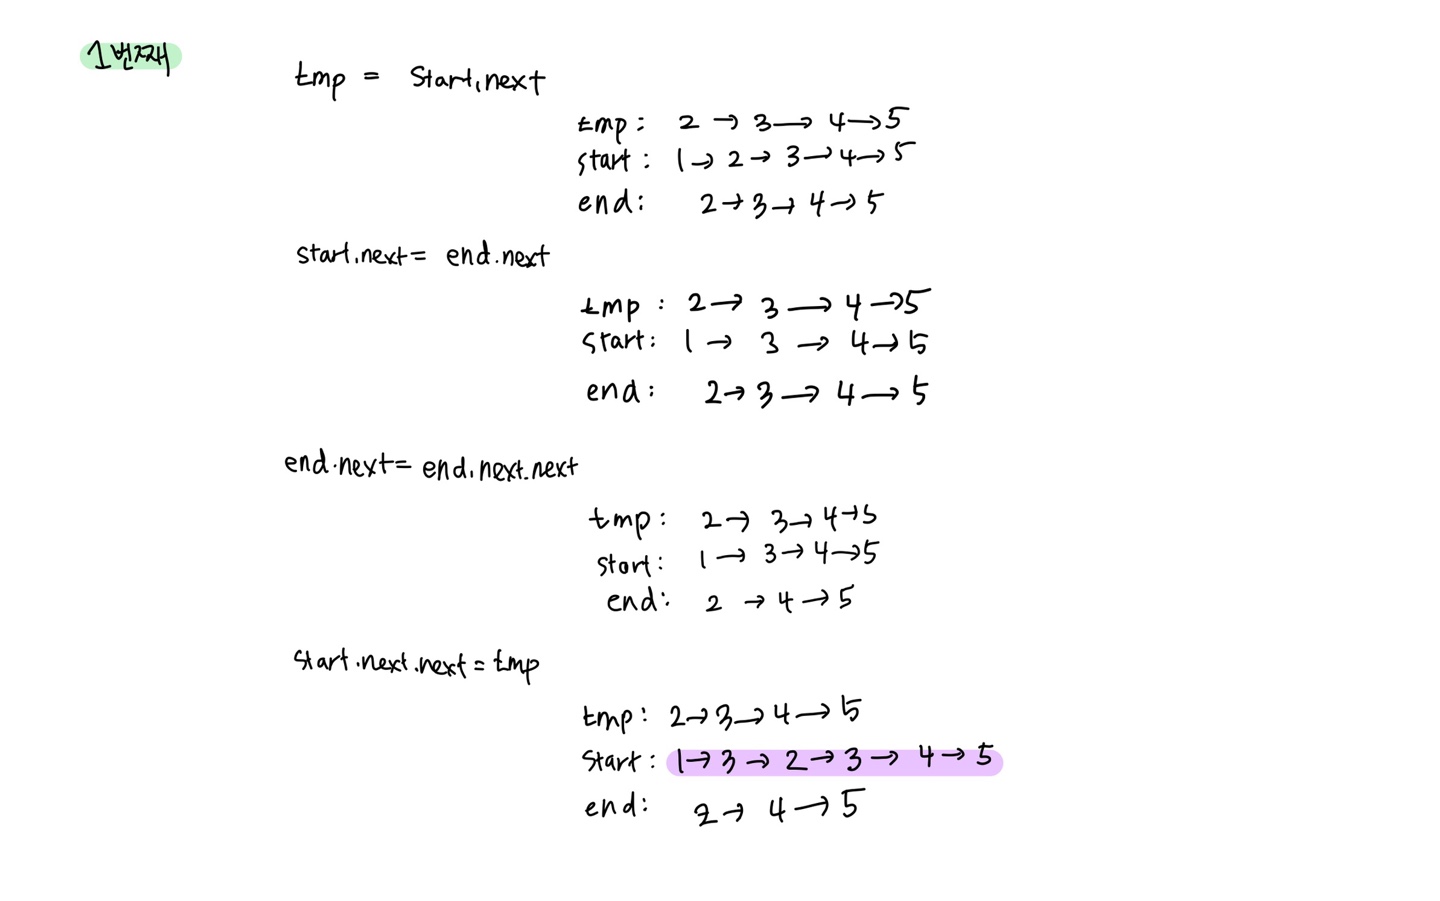 1번째
tmp = Start.next
tmp: 2 → 3 → 4 → 5
start: 1 → 2 → 3 → 4 → 5
end: 2 → 3 → 4 → 5
start.next = end.next
tmp: 2 → 3 → 4 → 5
start: 1 → 3 → 4 → 5
end: 2 → 3 → 4 → 5
end.next = end.next.next
tmp: 2 → 3 → 4 → 5
start: 1 → 3 → 4 → 5
end: 2 → 4 → 5
start.next.next = tmp
tmp: 2 → 3 → 4 → 5
start: 1 → 3 → 2 → 3 → 4 → 5
end: 2 → 4 → 5